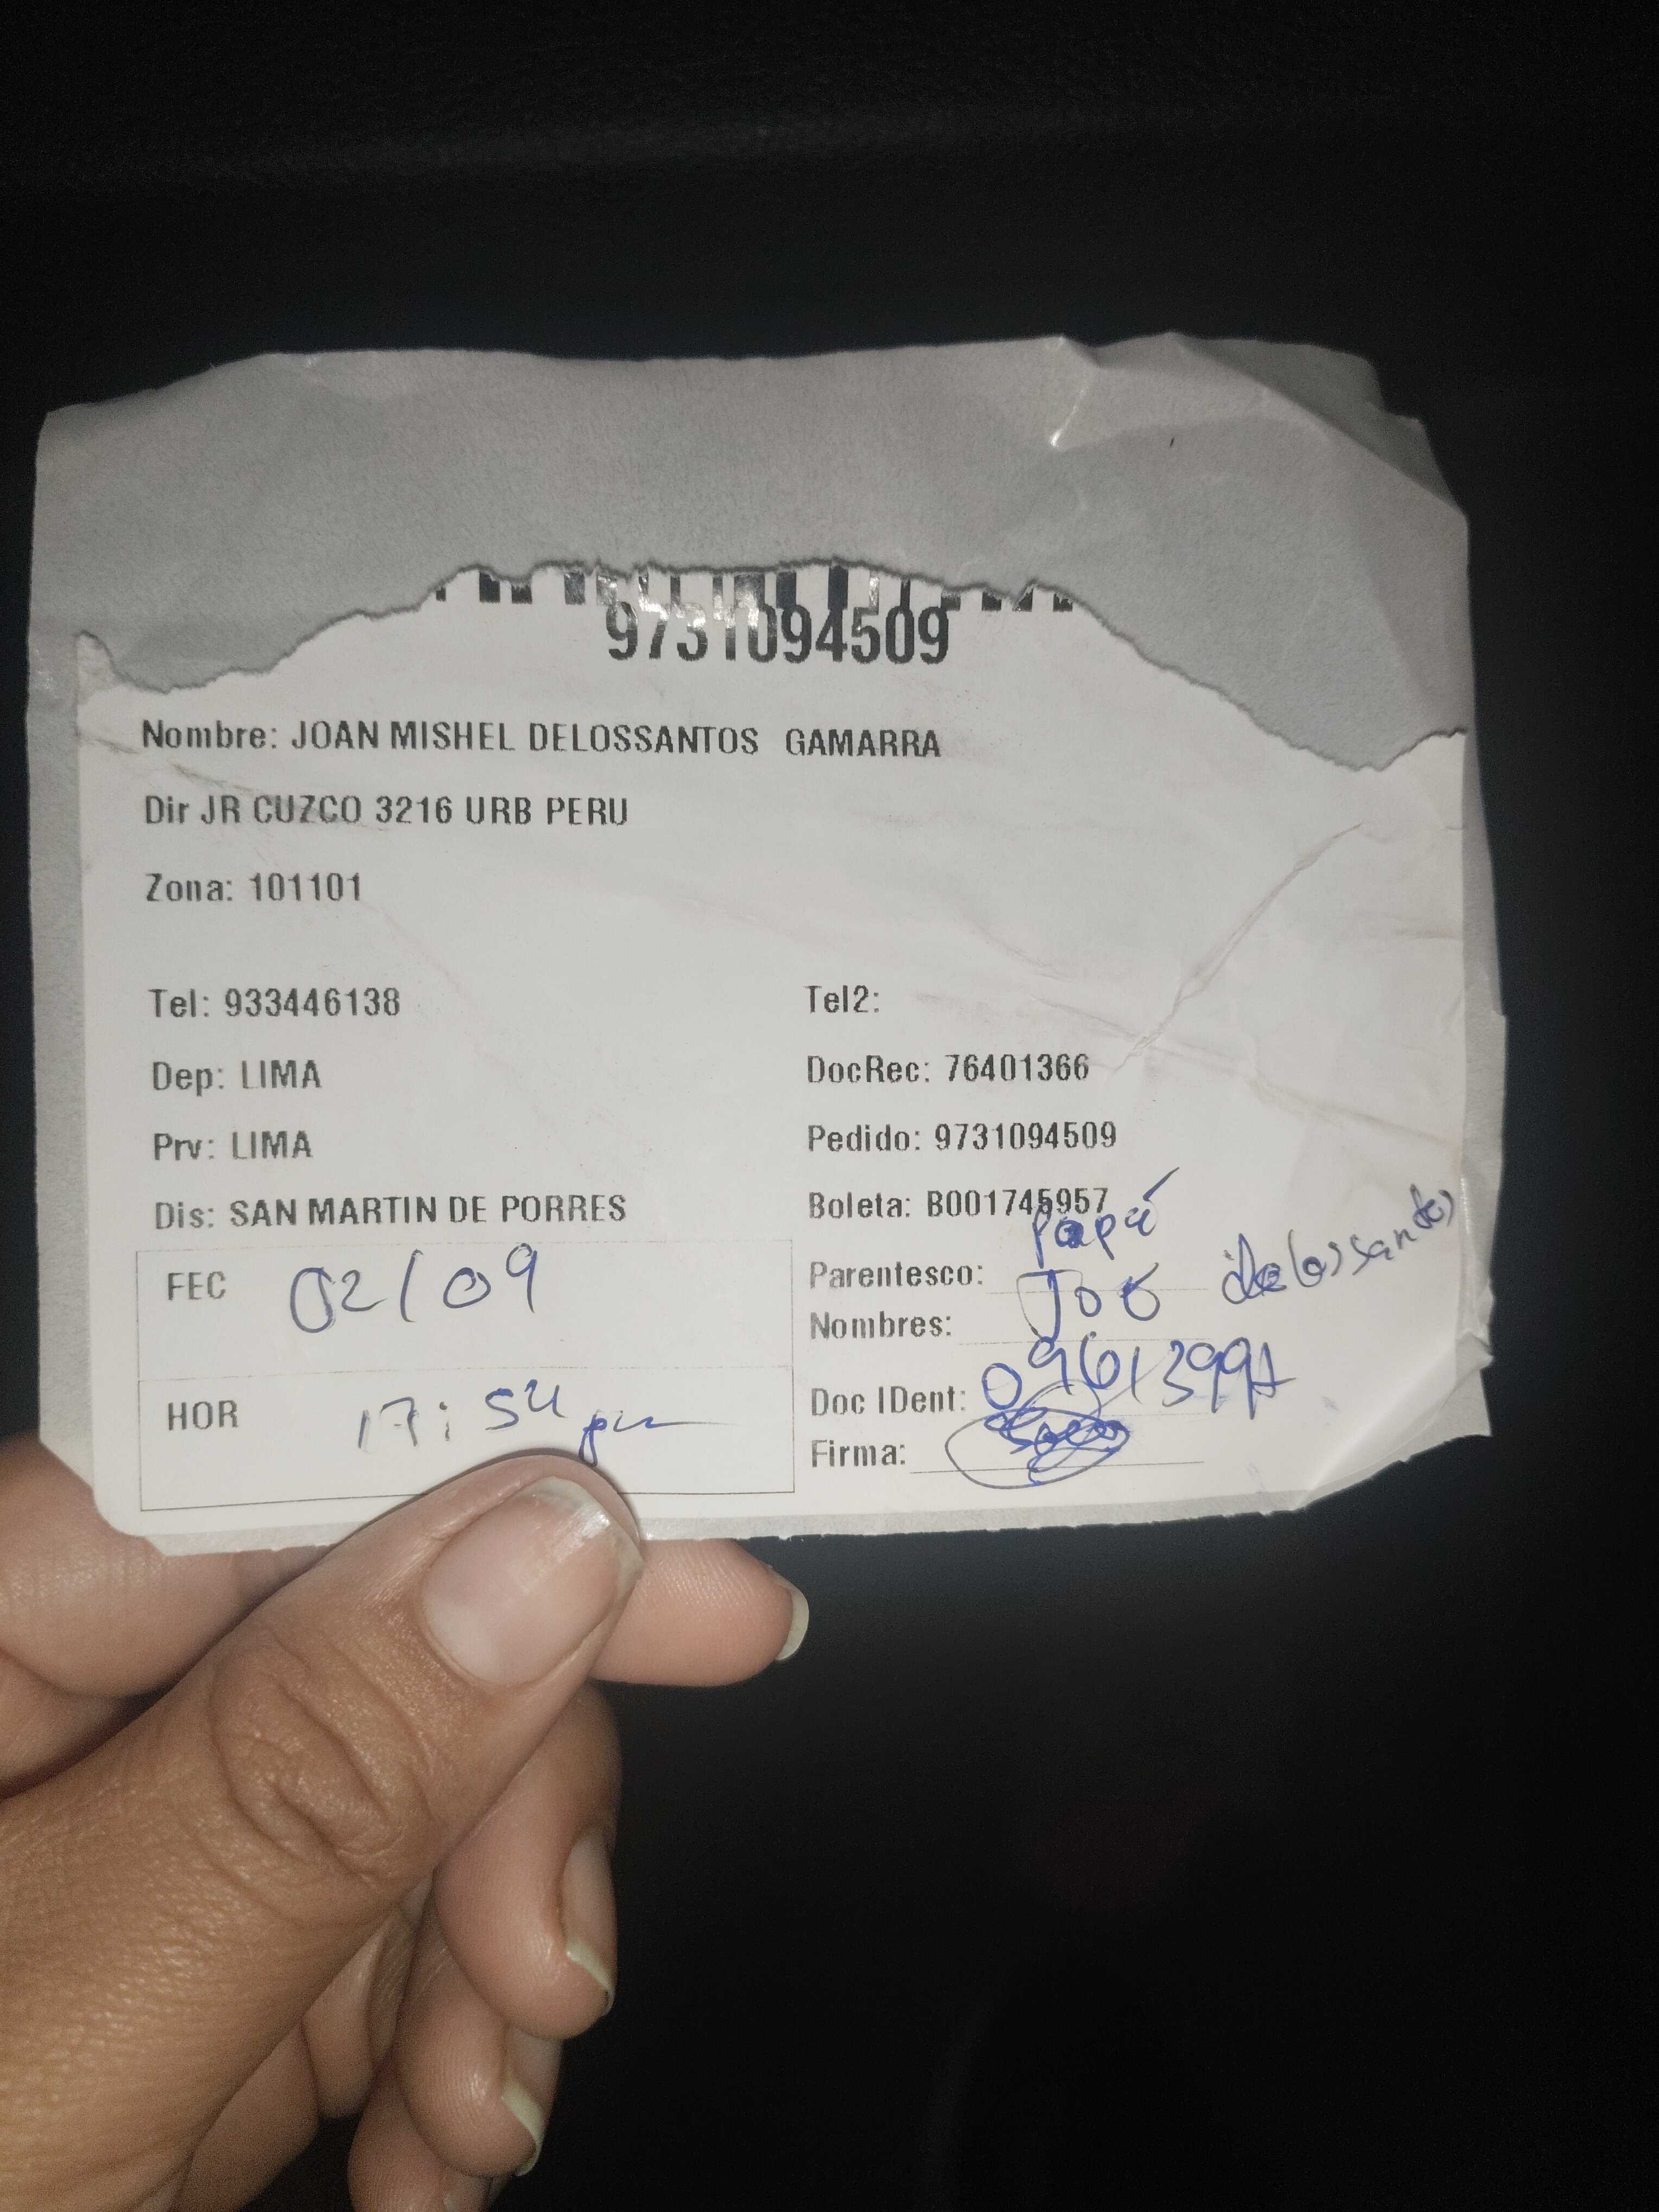 9731094509
Nombre: JOAN MISHEL DELOSSANTOS GAMARRA
Dir JR CUZCO 3216 URB PERU
Zona: 101101
Tel: 933446138 Tel2:
Dep: LIMA DocRec: 76401366
Prv: LIMA Pedido: 9731094509
Dis: SAN MARTIN DE PORRES Boleta: B001745957
FEC 02/09
HOR 17:54 pm
Parentesco: Papá
Nombres: delossantos
Doc IDent:
Firma: